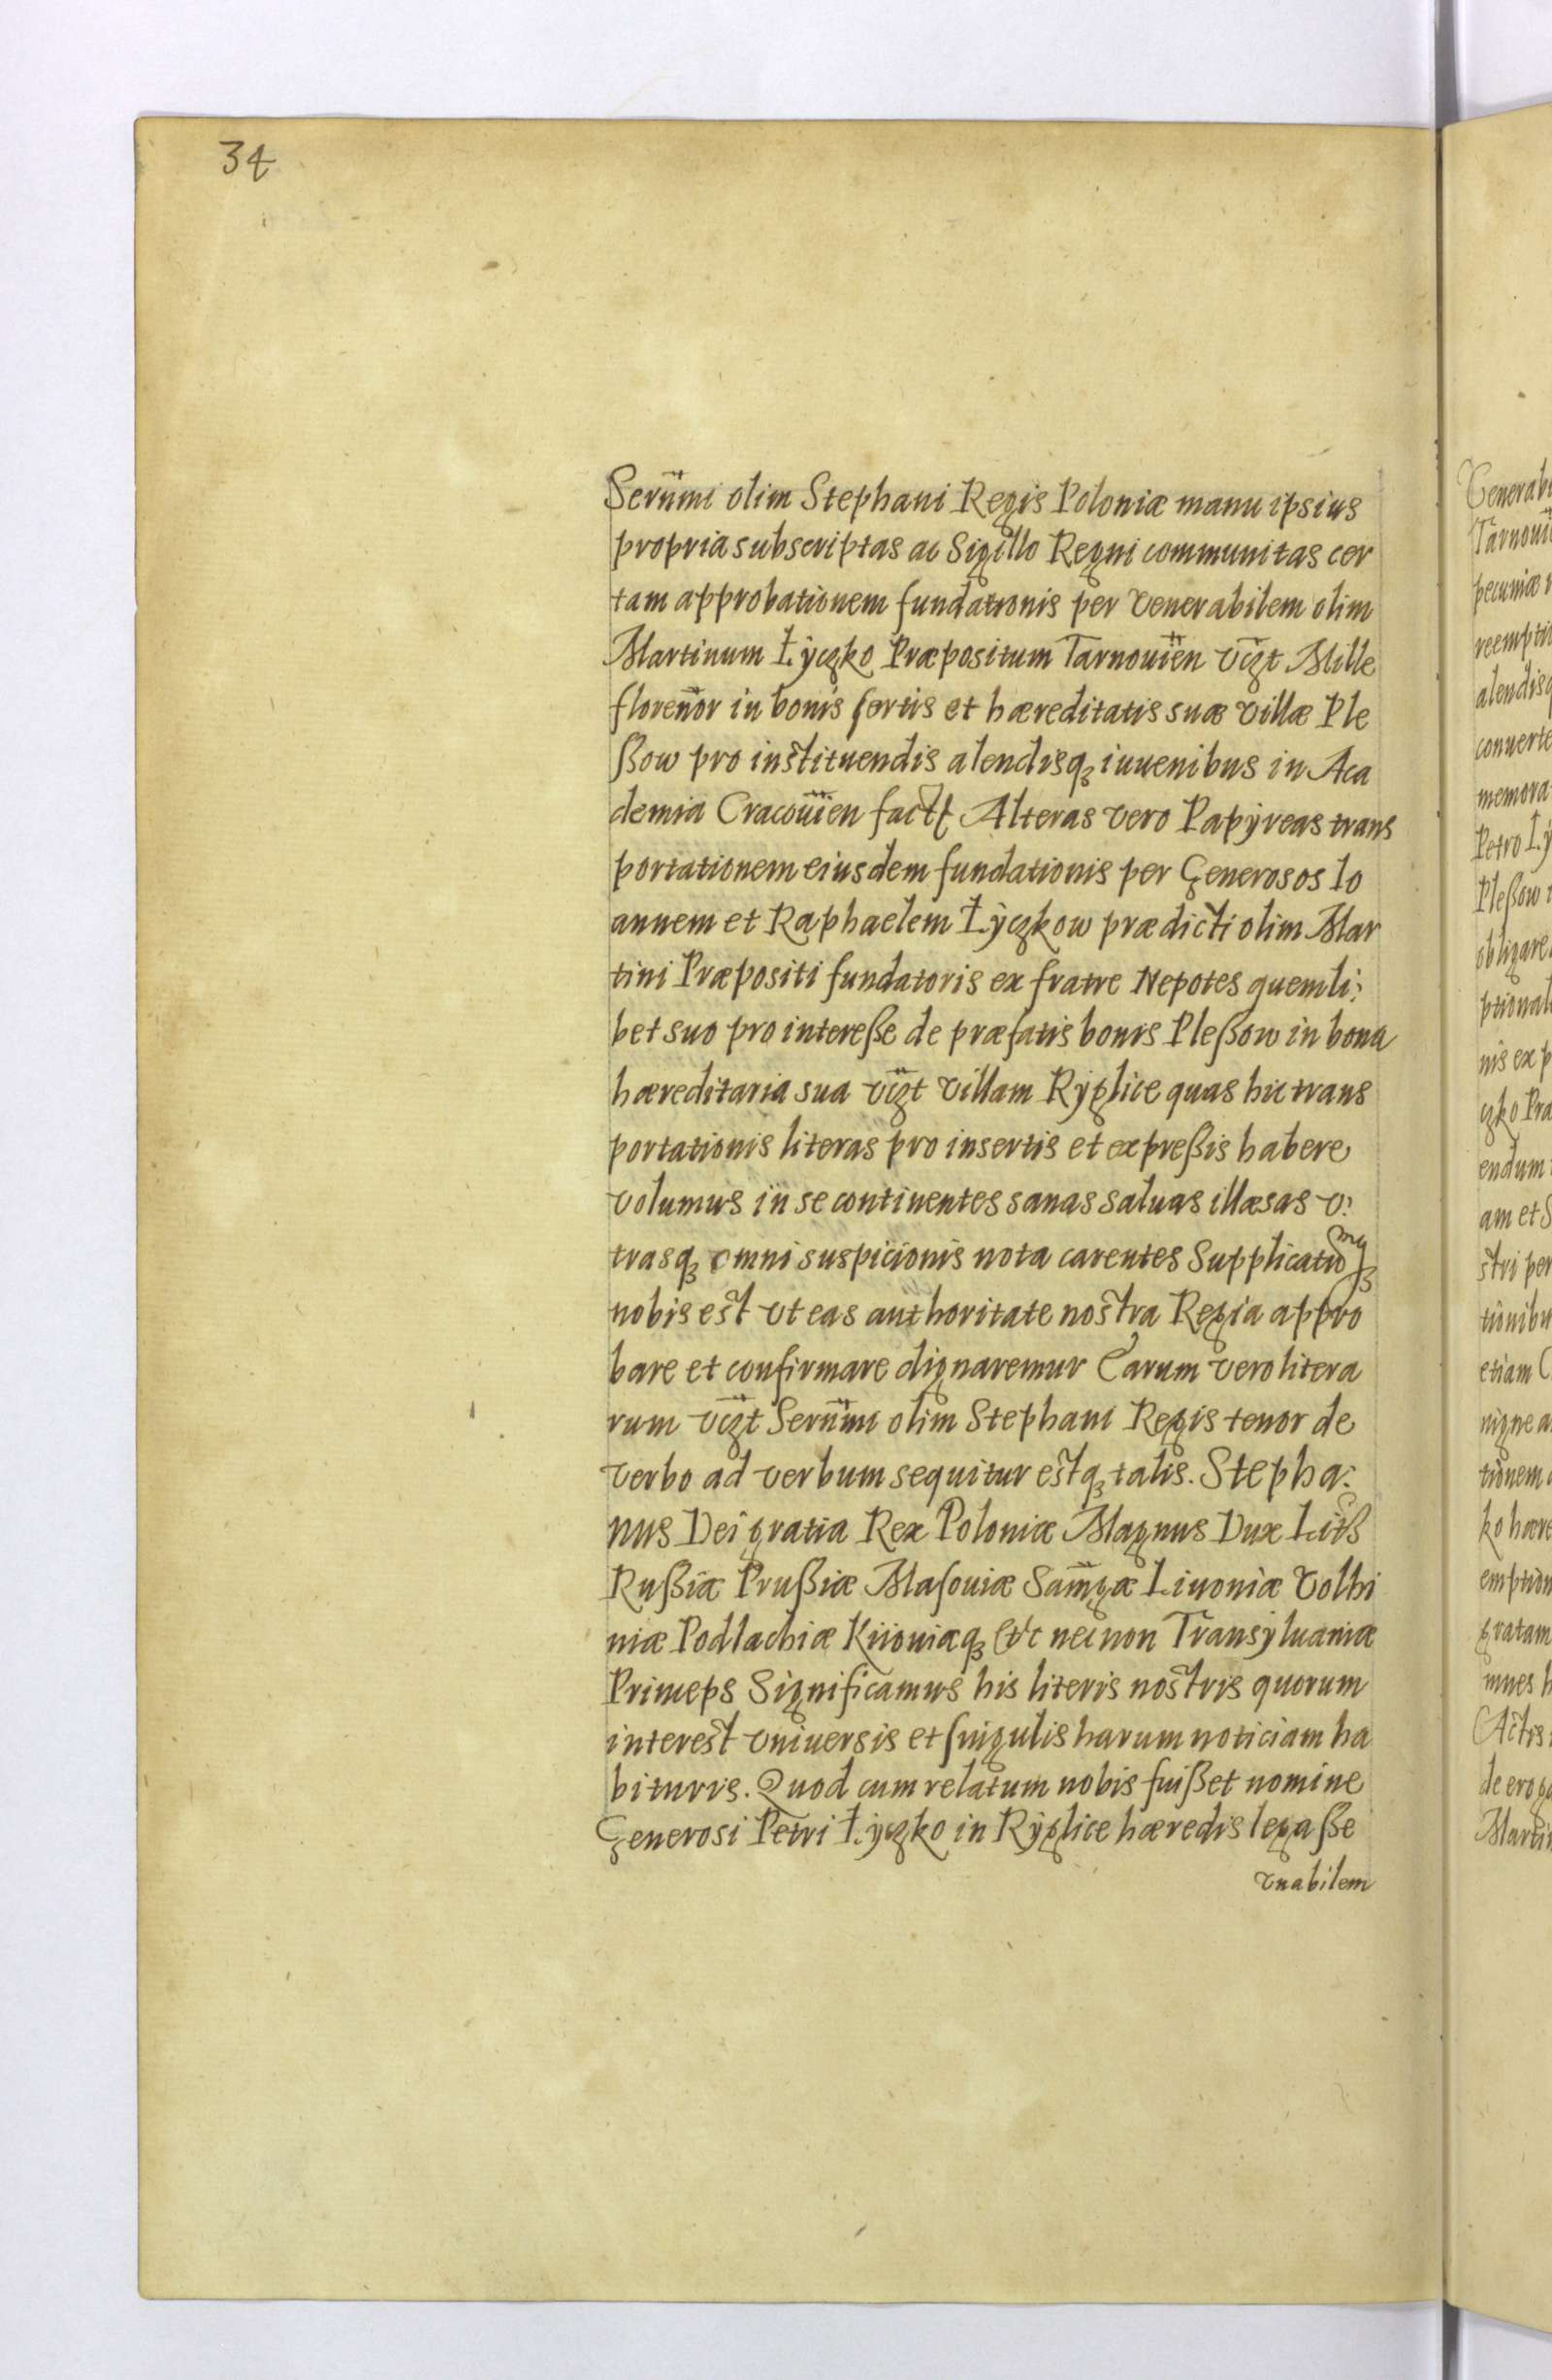 34
Serñmi olim Stephani Regis Poloniæ manu ipsius
propria subscriptas ac Sigillo Regni communitas cer
tam approbationem fundationis per Venerabilem olim
Martinum Łyczko Præpositum Tarnouien̄ vigt Mille
floren̄or in bonis sortis et hæreditatis suæ villæ Ple
ßow pro instituendis alendisqꝫ iuuenibus in Aca
demia Cracouien̄ Alteras vero Papÿreas trans
portationem eiusdem fundationis per Generosos Io
annem et Raphaelem Łÿczkow prædicti olim Mar
tini Præpositi fundatoris ex fratre Nepotes quemli:
bet suo pro intereße de præfatis bonis Pleßow in bona
hæreditaria sua vigt villam Rÿglice quas hic trans
portationis literas pro insertis et expreßis habere
volumus in se continentes sanas saluas illæsas v:
trasqꝫ omni suspicionis nota carentes Supplicatumqꝫ
nobis est vt eas authoritate nostra Regia appro
bare et confirmare dignaremur Earum vero litera
rum vigt Serñmi olim Stephani Regis tenor de
verbo ad verbum sequitur estqꝫ talis. Stepha:
nus Dei gratia Rex Poloniæ Magnus Dux Lith
Rußiæ Prußiæ Masouiæ Sam̄gæ Liuoniæ Volhi
niæ Podlachiæ Kiiouiæqꝫ etc necnon Transÿluaniæ
Princeps Significamus his literis nostris quorum
interest vniuersis et singulis harum noticiam ha
bituris. Quod cum relatum nobis fuißet nomine
Generosi Petri Łyczko in Rÿglice hæredis legaße
vnabilem